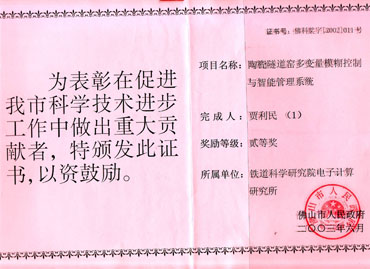 为表彰在促进
我市科学技术进步
工作中做出重大贡
献者，特颁发此证
书，以资鼓励。
证书号：佛科奖字[2002]011号
项目名称：陶瓷隧道窑多变量模糊控制
与智能管理系统
完成人：贾利民 （1）
奖励等级：贰等奖
所属单位：铁道科学研究院电子计算
研究所
佛山市人民政府
二〇〇三年六月